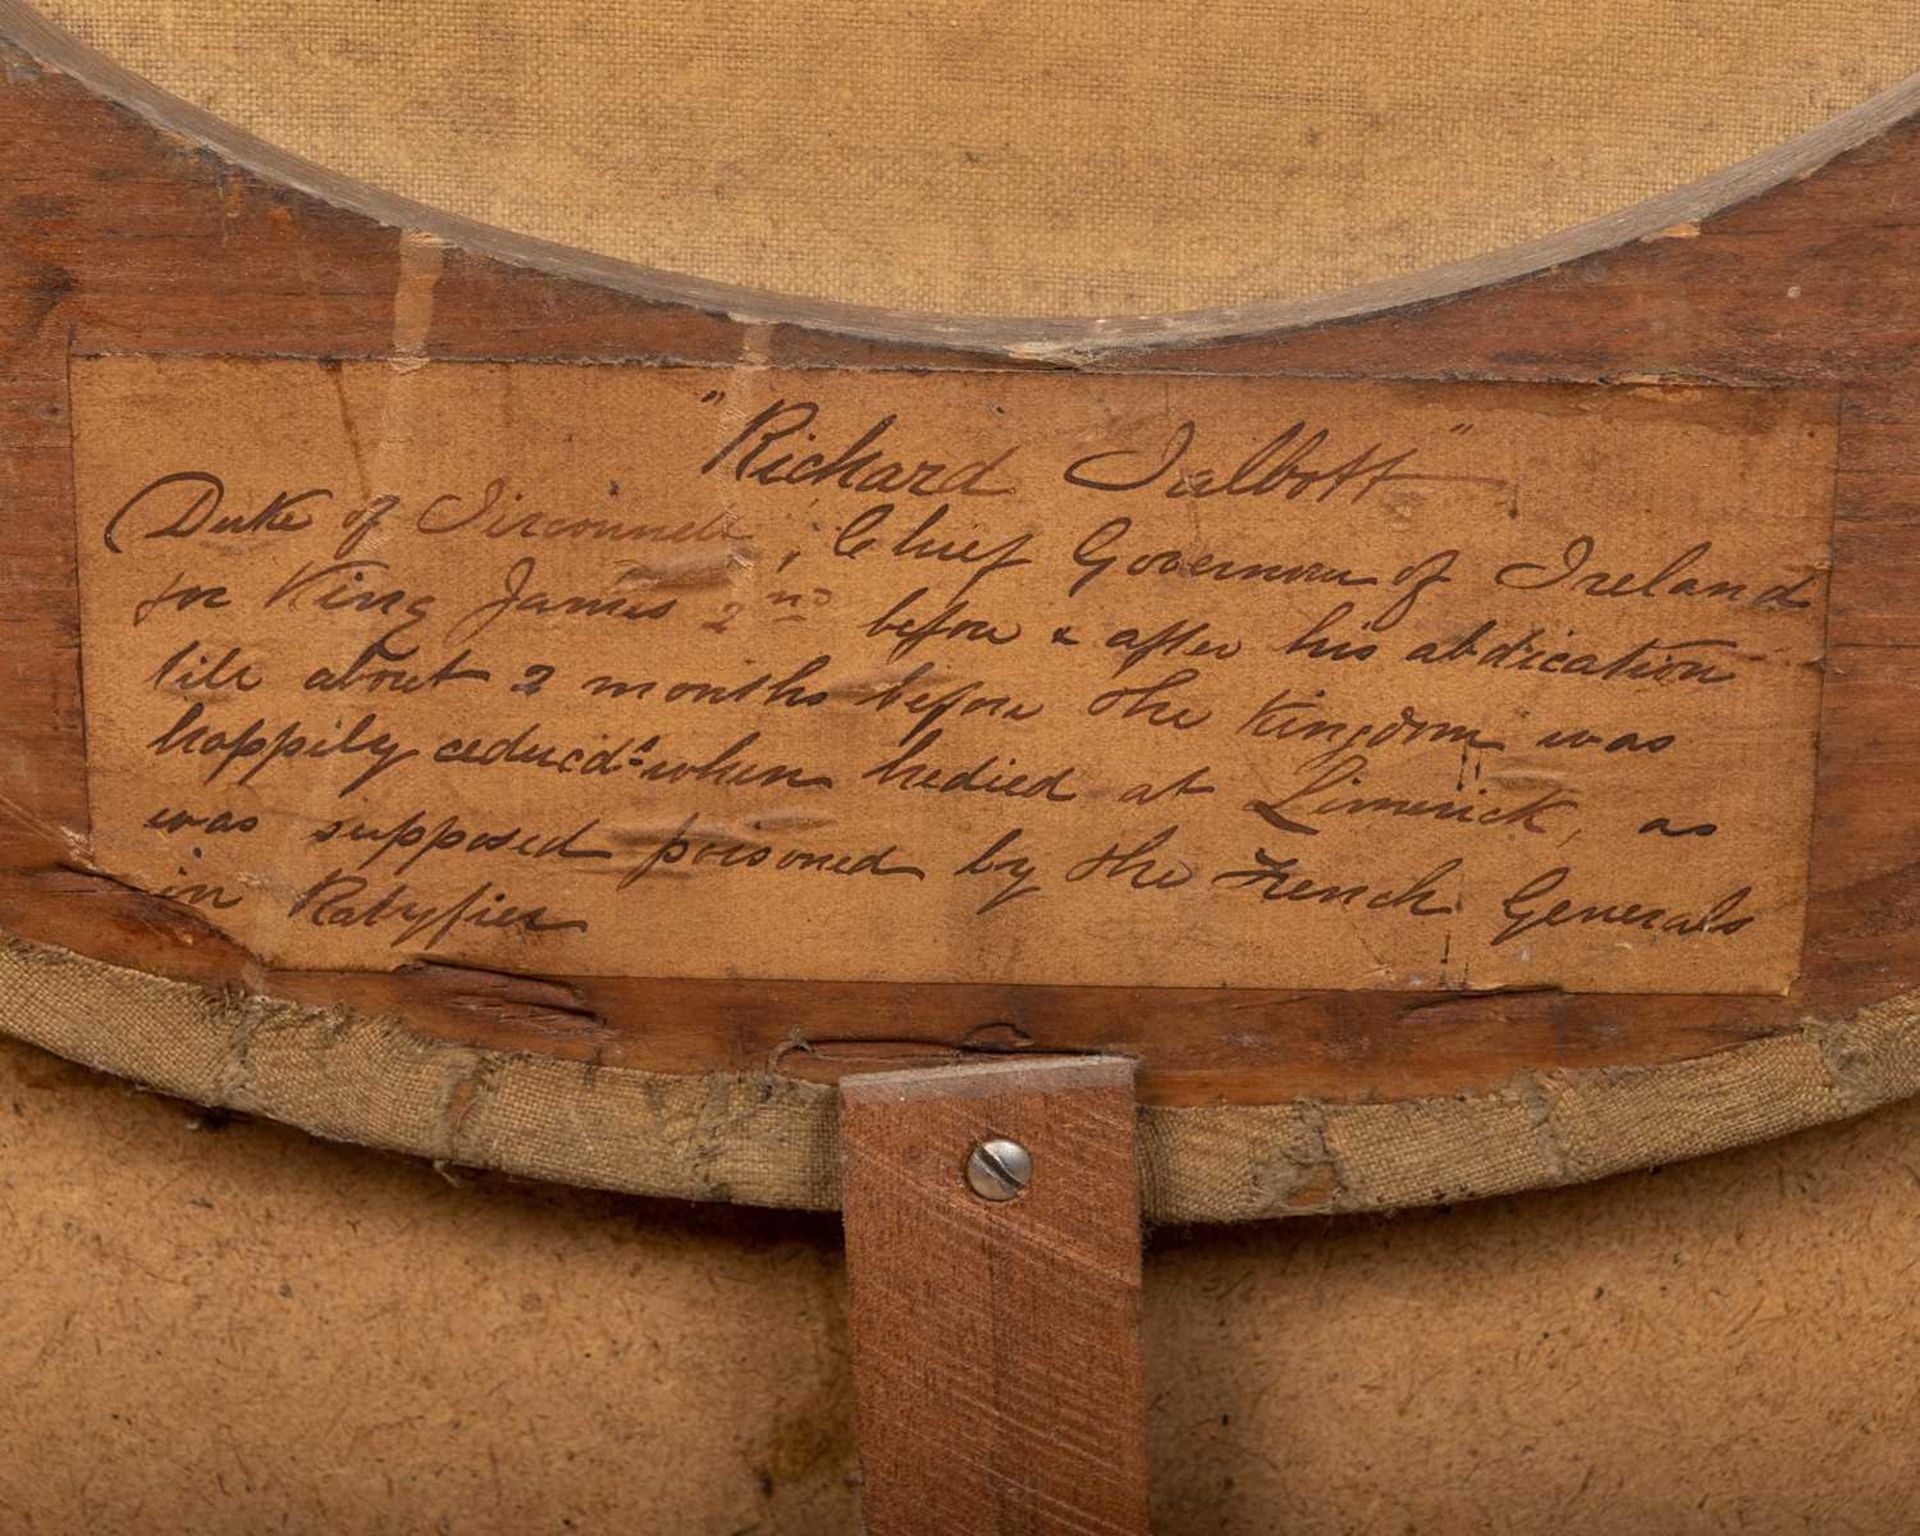 "Richard Talbott"
Duke of Tirconnell, Chief Governour of Ireland
for King James 2nd before & after his abdication
till about 2 months before the Kingdom was
happily reduced: when he died at Limerick, as
was supposed poisoned by the French Generals
in Ratyfier